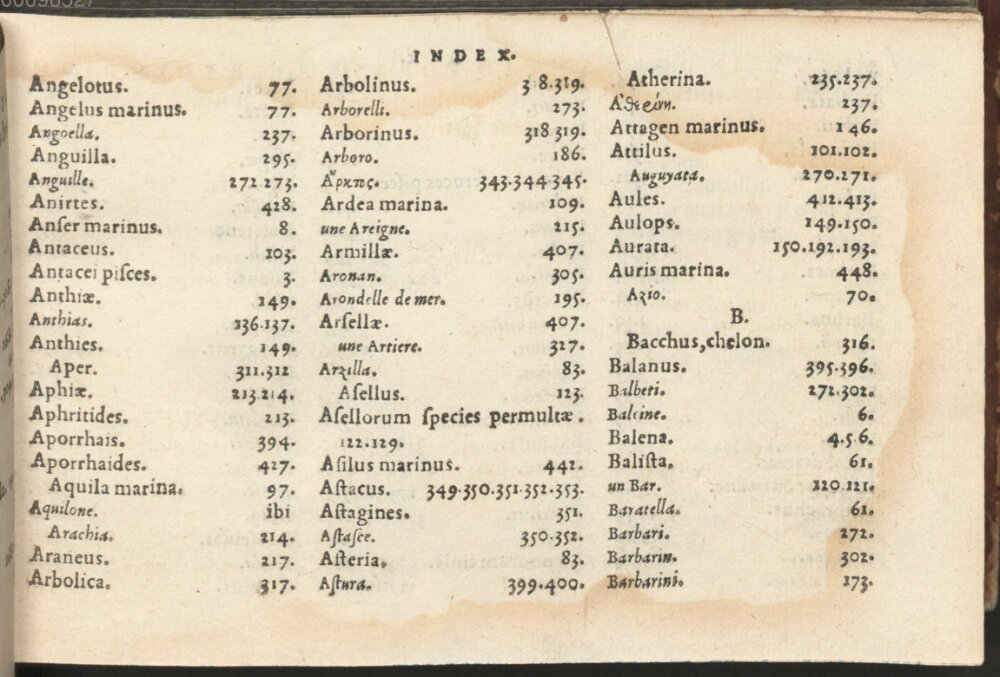 INDEX.
Angelotus. 77.
Angelus marinus. 77.
Angoella. 237.
Anguilla. 295.
Anguille. 272 273.
Anirtes. 428.
Anſer marinus. 8.
Antaceus. 103.
Antacei piſces. 3.
Anthiæ. 149.
Anthias. 136.137.
Anthies. 149.
Aper. 311.312
Aphiæ. 213.214.
Aphritides. 213.
Aporrhais. 394.
Aporrhaides. 427.
Aquila marina. 97.
Aquilone. ibi
Arachia. 214.
Araneus. 217.
Arbolica. 317.
Arbolinus. 318.319.
Arborelli. 273.
Arborinus. 318 319.
Arboro. 186.
Ἄρκτος. 343.344.345.
Ardea marina. 109.
une Areigne. 215.
Armillæ. 407.
Aronan. 305.
Arondelle de mer. 195.
Arſellæ. 407.
une Artiere. 327.
Arzilla. 83.
Aſellus. 123.
Aſellorum ſpecies permultæ.
122.129.
Aſilus marinus. 442.
Aſtacus. 349.350.351.352.353.
Aſtagines. 351.
Aſtaſce. 350.352.
Aſteria. 83.
Aſtura. 399.400.
Atherina. 235.237.
Ἀθερίνη. 237.
Attagen marinus. 146.
Attilus. 101.102.
Auguyata. 270.271.
Aules. 412.413.
Aulops. 149.150.
Aurata. 150.192.193.
Auris marina. 448.
Azio. 70.
B.
Bacchus, chelon. 316.
Balanus. 395.396.
Balberi. 272.302.
Baleine. 6.
Balena. 4.5.6.
Baliſta. 61.
un Bar. 120.121.
Baratella. 61.
Barbari. 272.
Barbarin. 302.
Barbarini. 173.